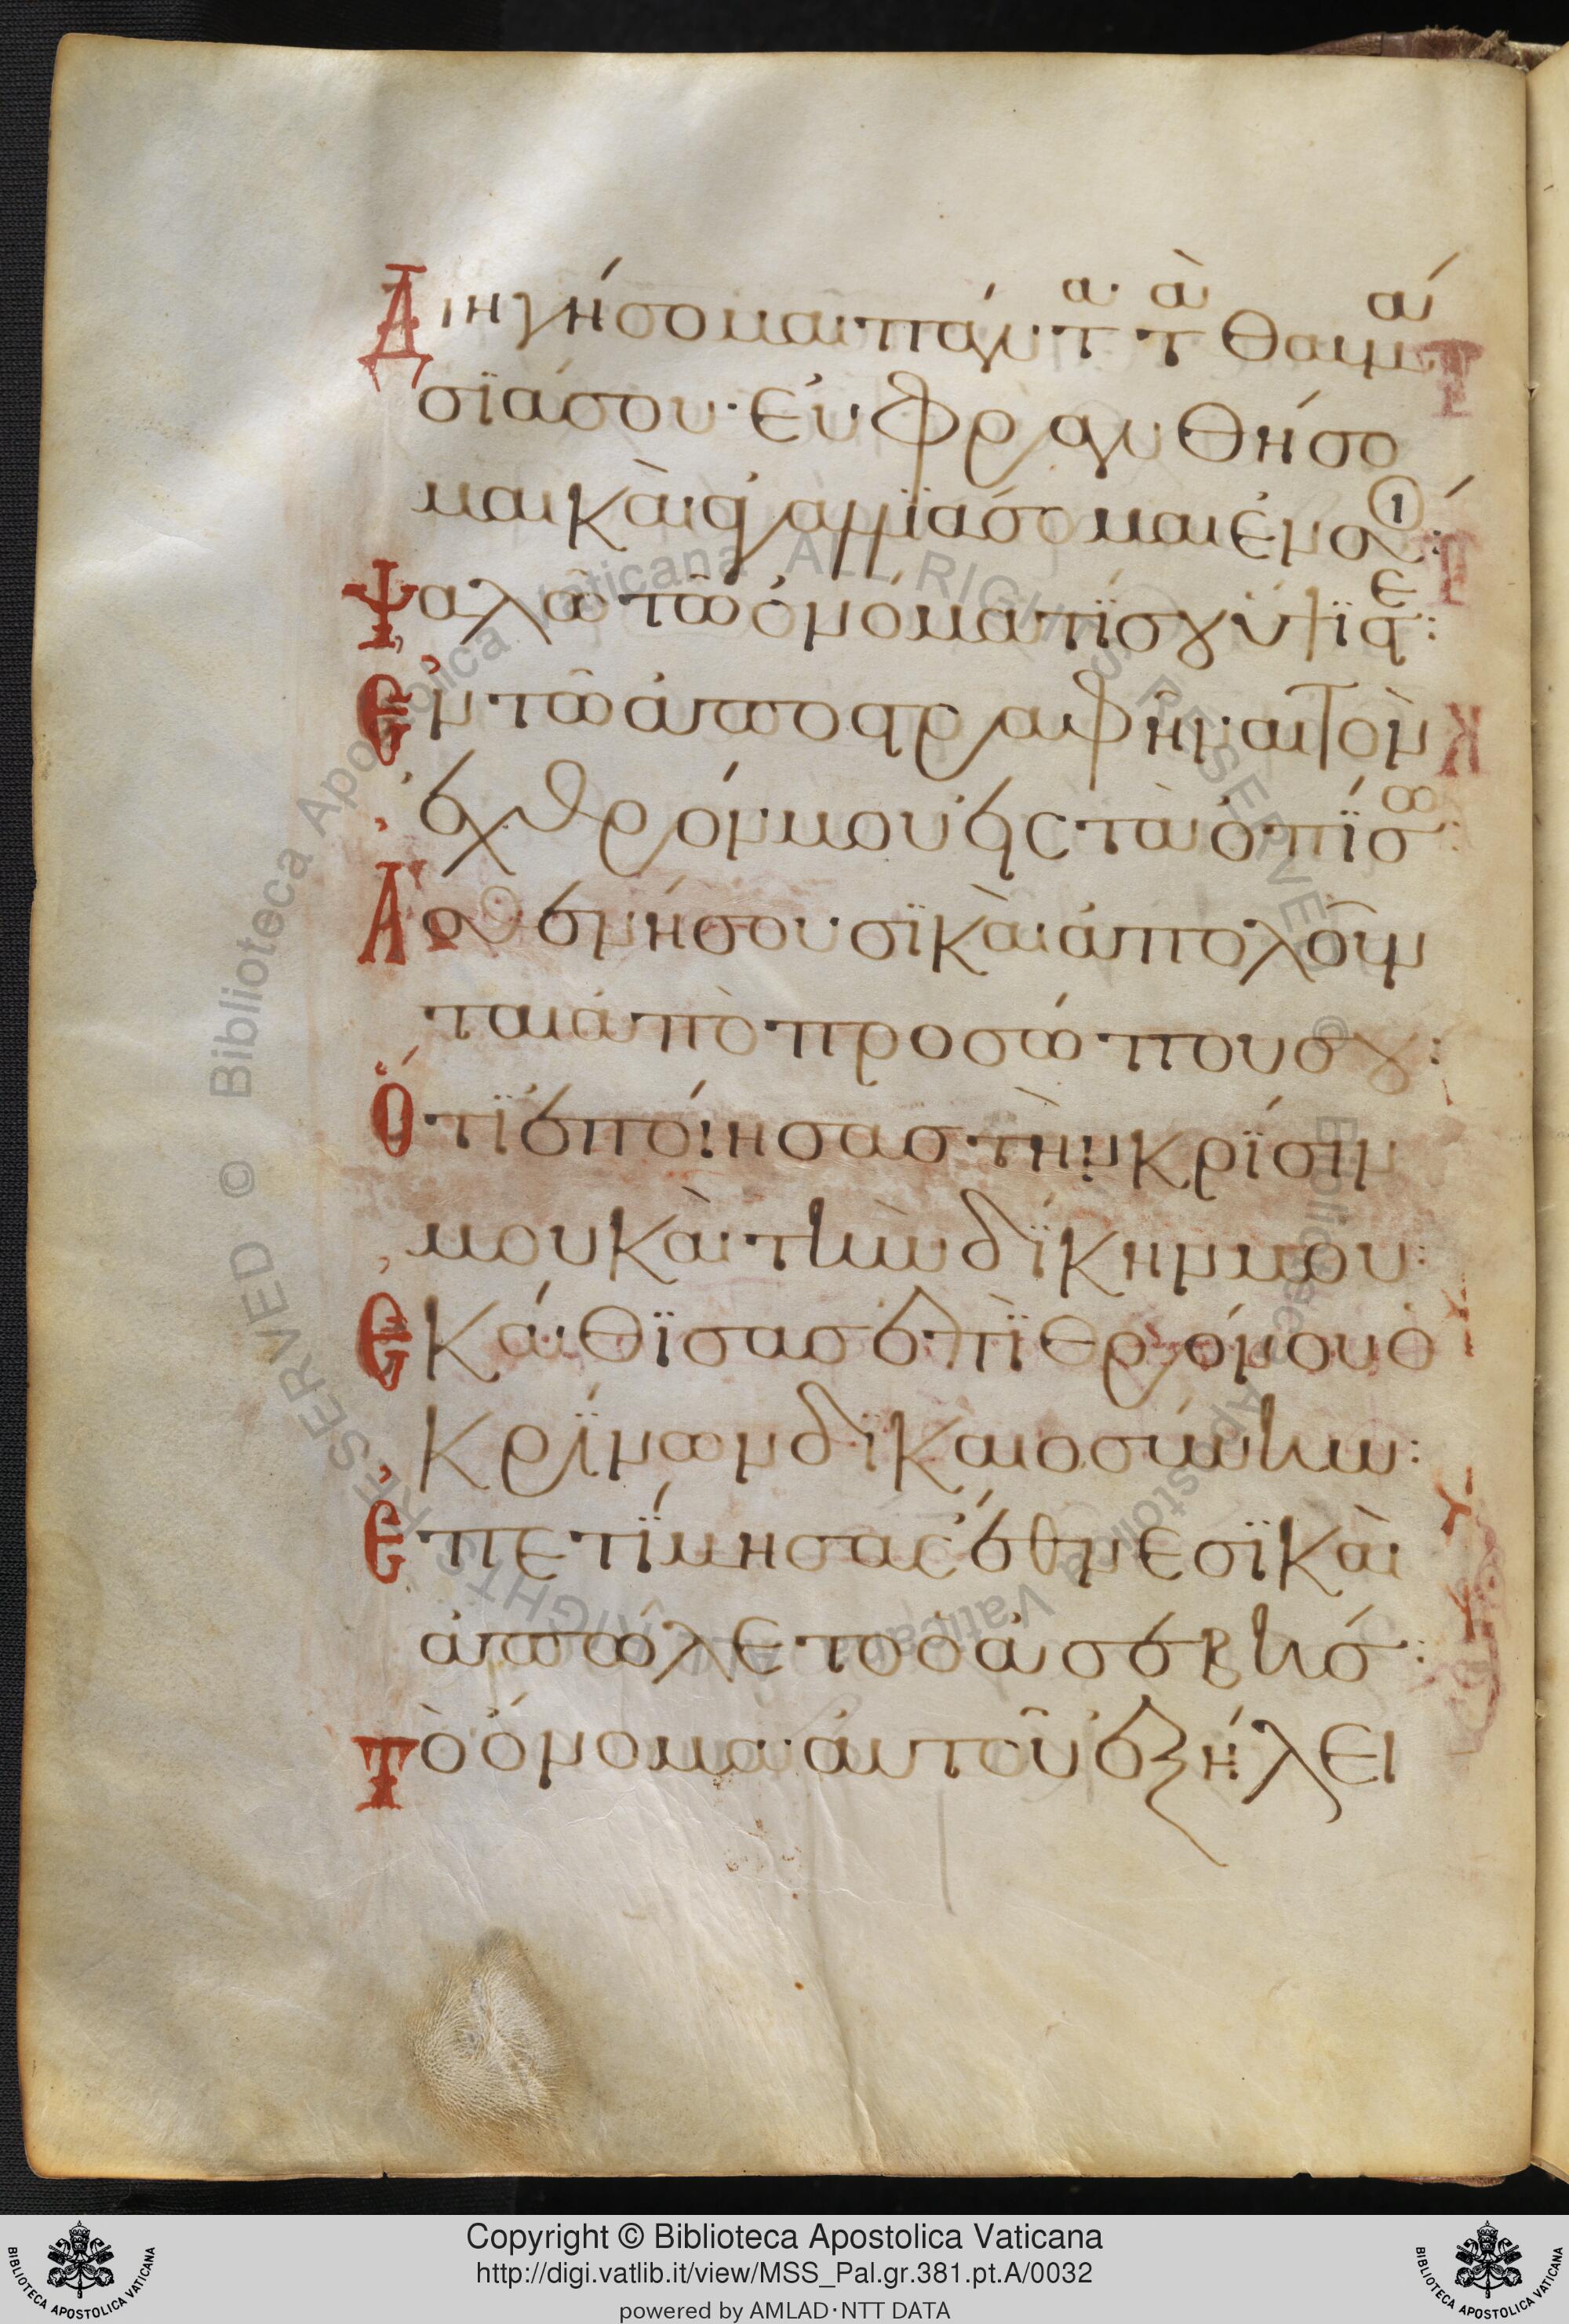 Διηγήσομαι πάντα τὰ θαυμά
σϊά σου· ἐυφρανθήσο
μαι καὶ ἀγαλλϊάσομαι ἐν σοί:
Ψαλῶ τῶ ὀνόματί σου ὕψϊστε:
Ἐν τῶ ἀποστραφῆναι τὸν
ἐχθρόν μου εἰς τὰ ὀπίσω:
Ἀσθενήσουσϊ καὶ ἀπολοῦν
ται ἀπὸ προσώπου σου:
Ὅτϊ ἐποίησας τὴν κρίσιν
μου καὶ τὴν δίκην μου:
Ἐκάθϊσας ἐπὶ θρόνου ὁ
κρίνων δϊκαιοσύνην:
Ἐπετίμησας ἔθνεσϊ καὶ
ἀπώλετο ὁ ἀσεβής:
Τὸ ὄνομα ἀυτοῦ ἐξήλει
Copyright © Biblioteca Apostolica Vaticana
http://digi.vatlib.it/view/MSS_Pal.gr.381.pt.A/0032
powered by AMLAD·NTT DATA
BIBLIOTECA APOSTOLICA VATICANA
BIBLIOTECA APOSTOLICA VATICANA